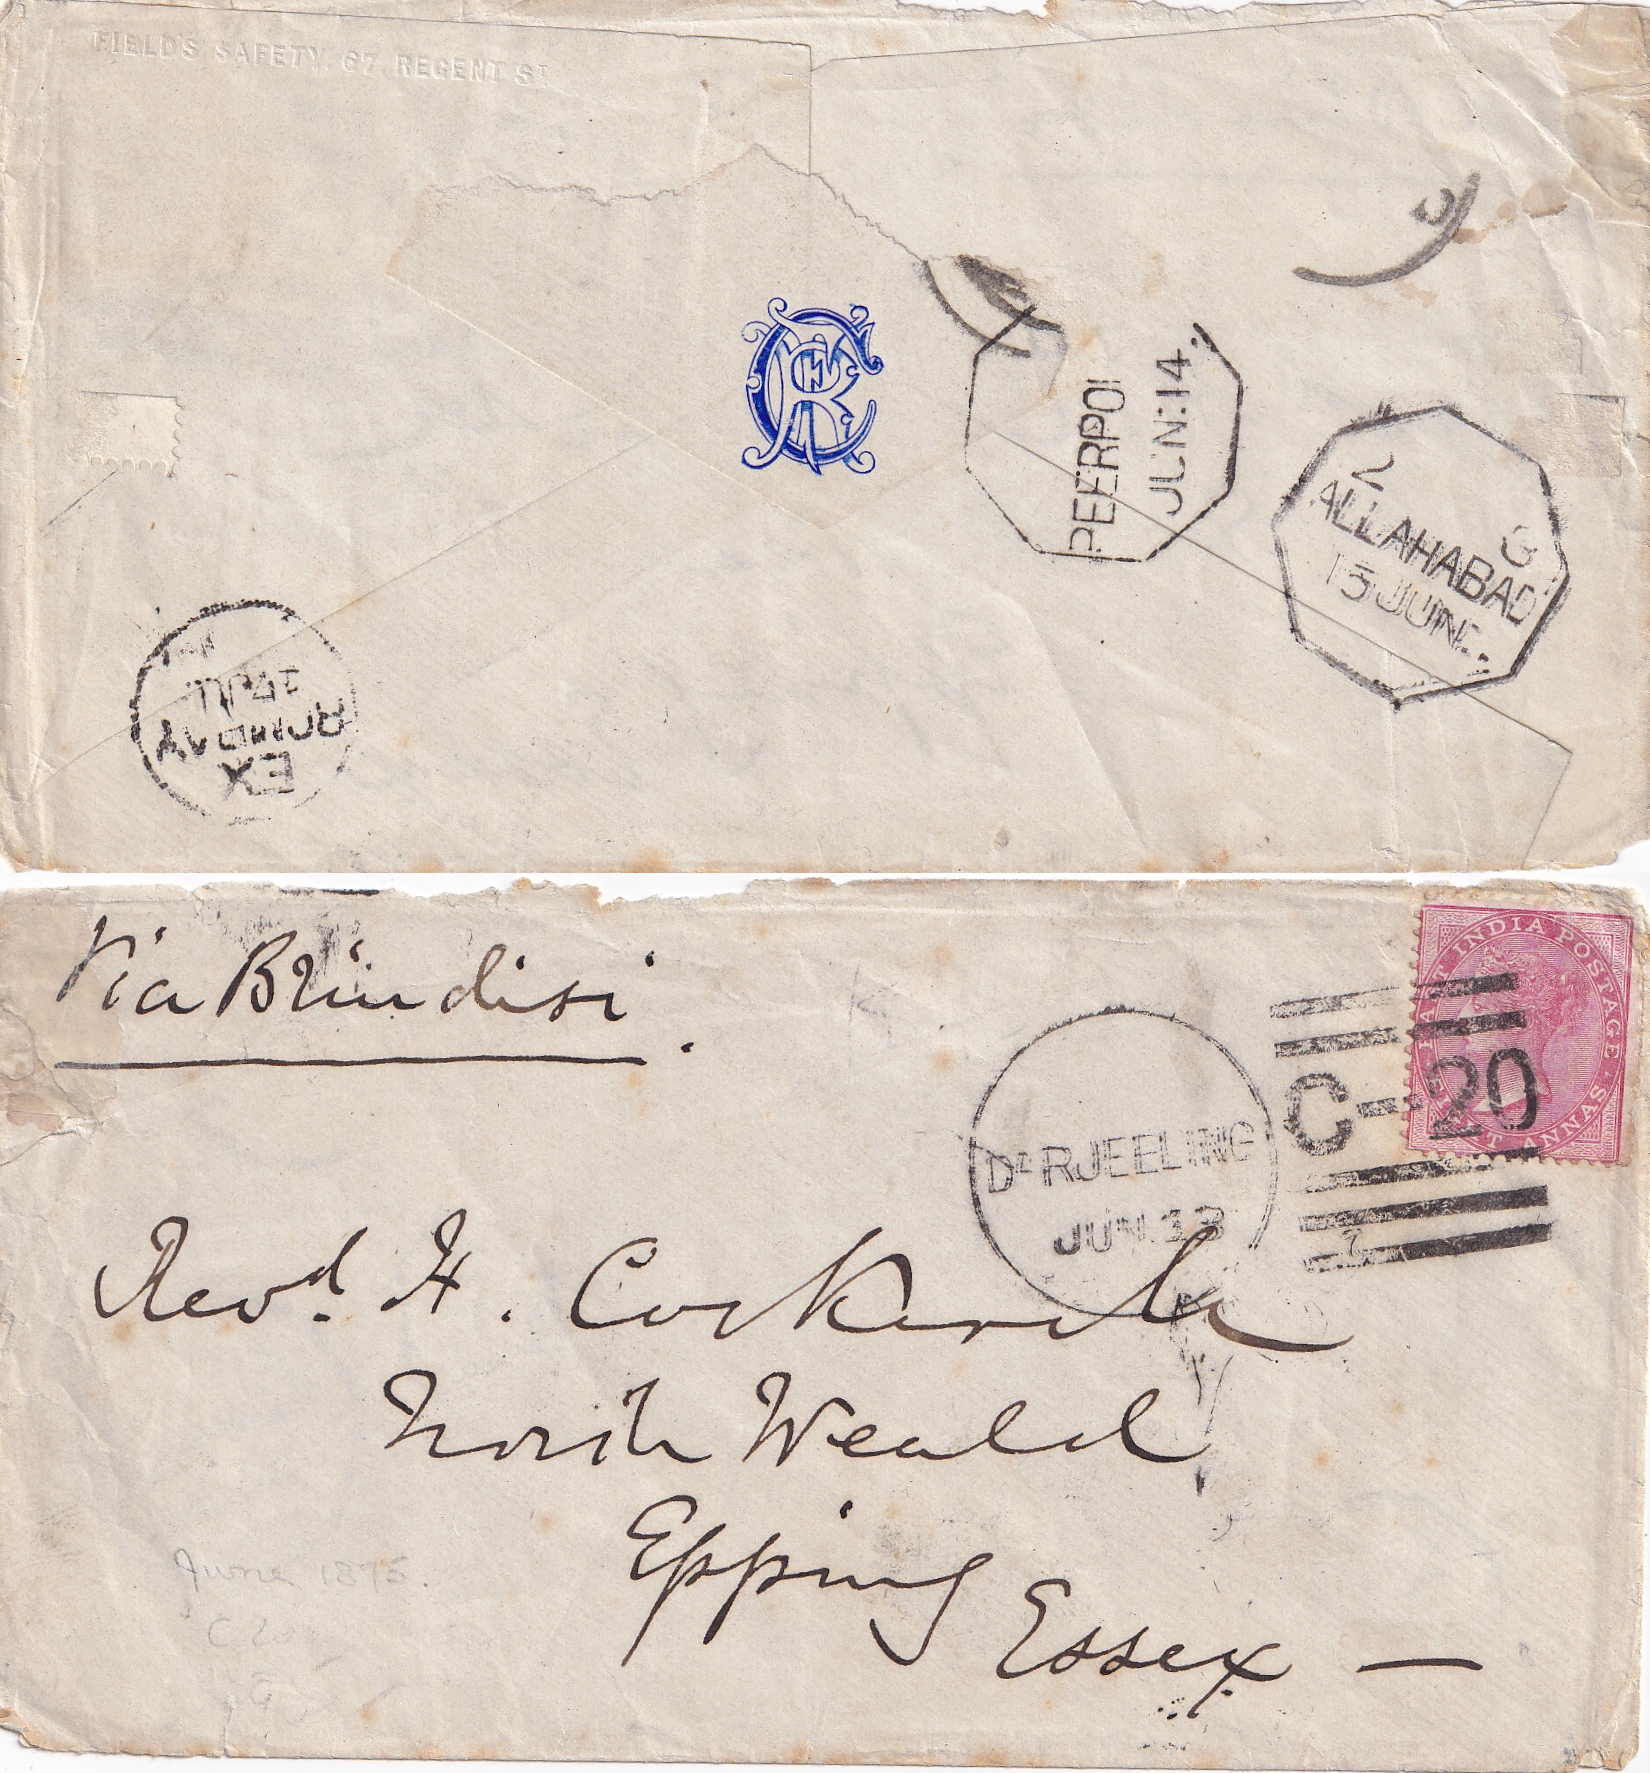 FIELD'S SAFETY. 67 REGENT ST
PEERPOI
JUN:14
2 G
ALLAHABAD
15 JUNE.
EX
BOMBAY
Via Brindisi.
EAST INDIA POSTAGE
EIGHT ANNAS
C-20
DARJEELING
JUN.13
Revd. H. Cockerell
North Weald
Epping
Essex —
June 1875.